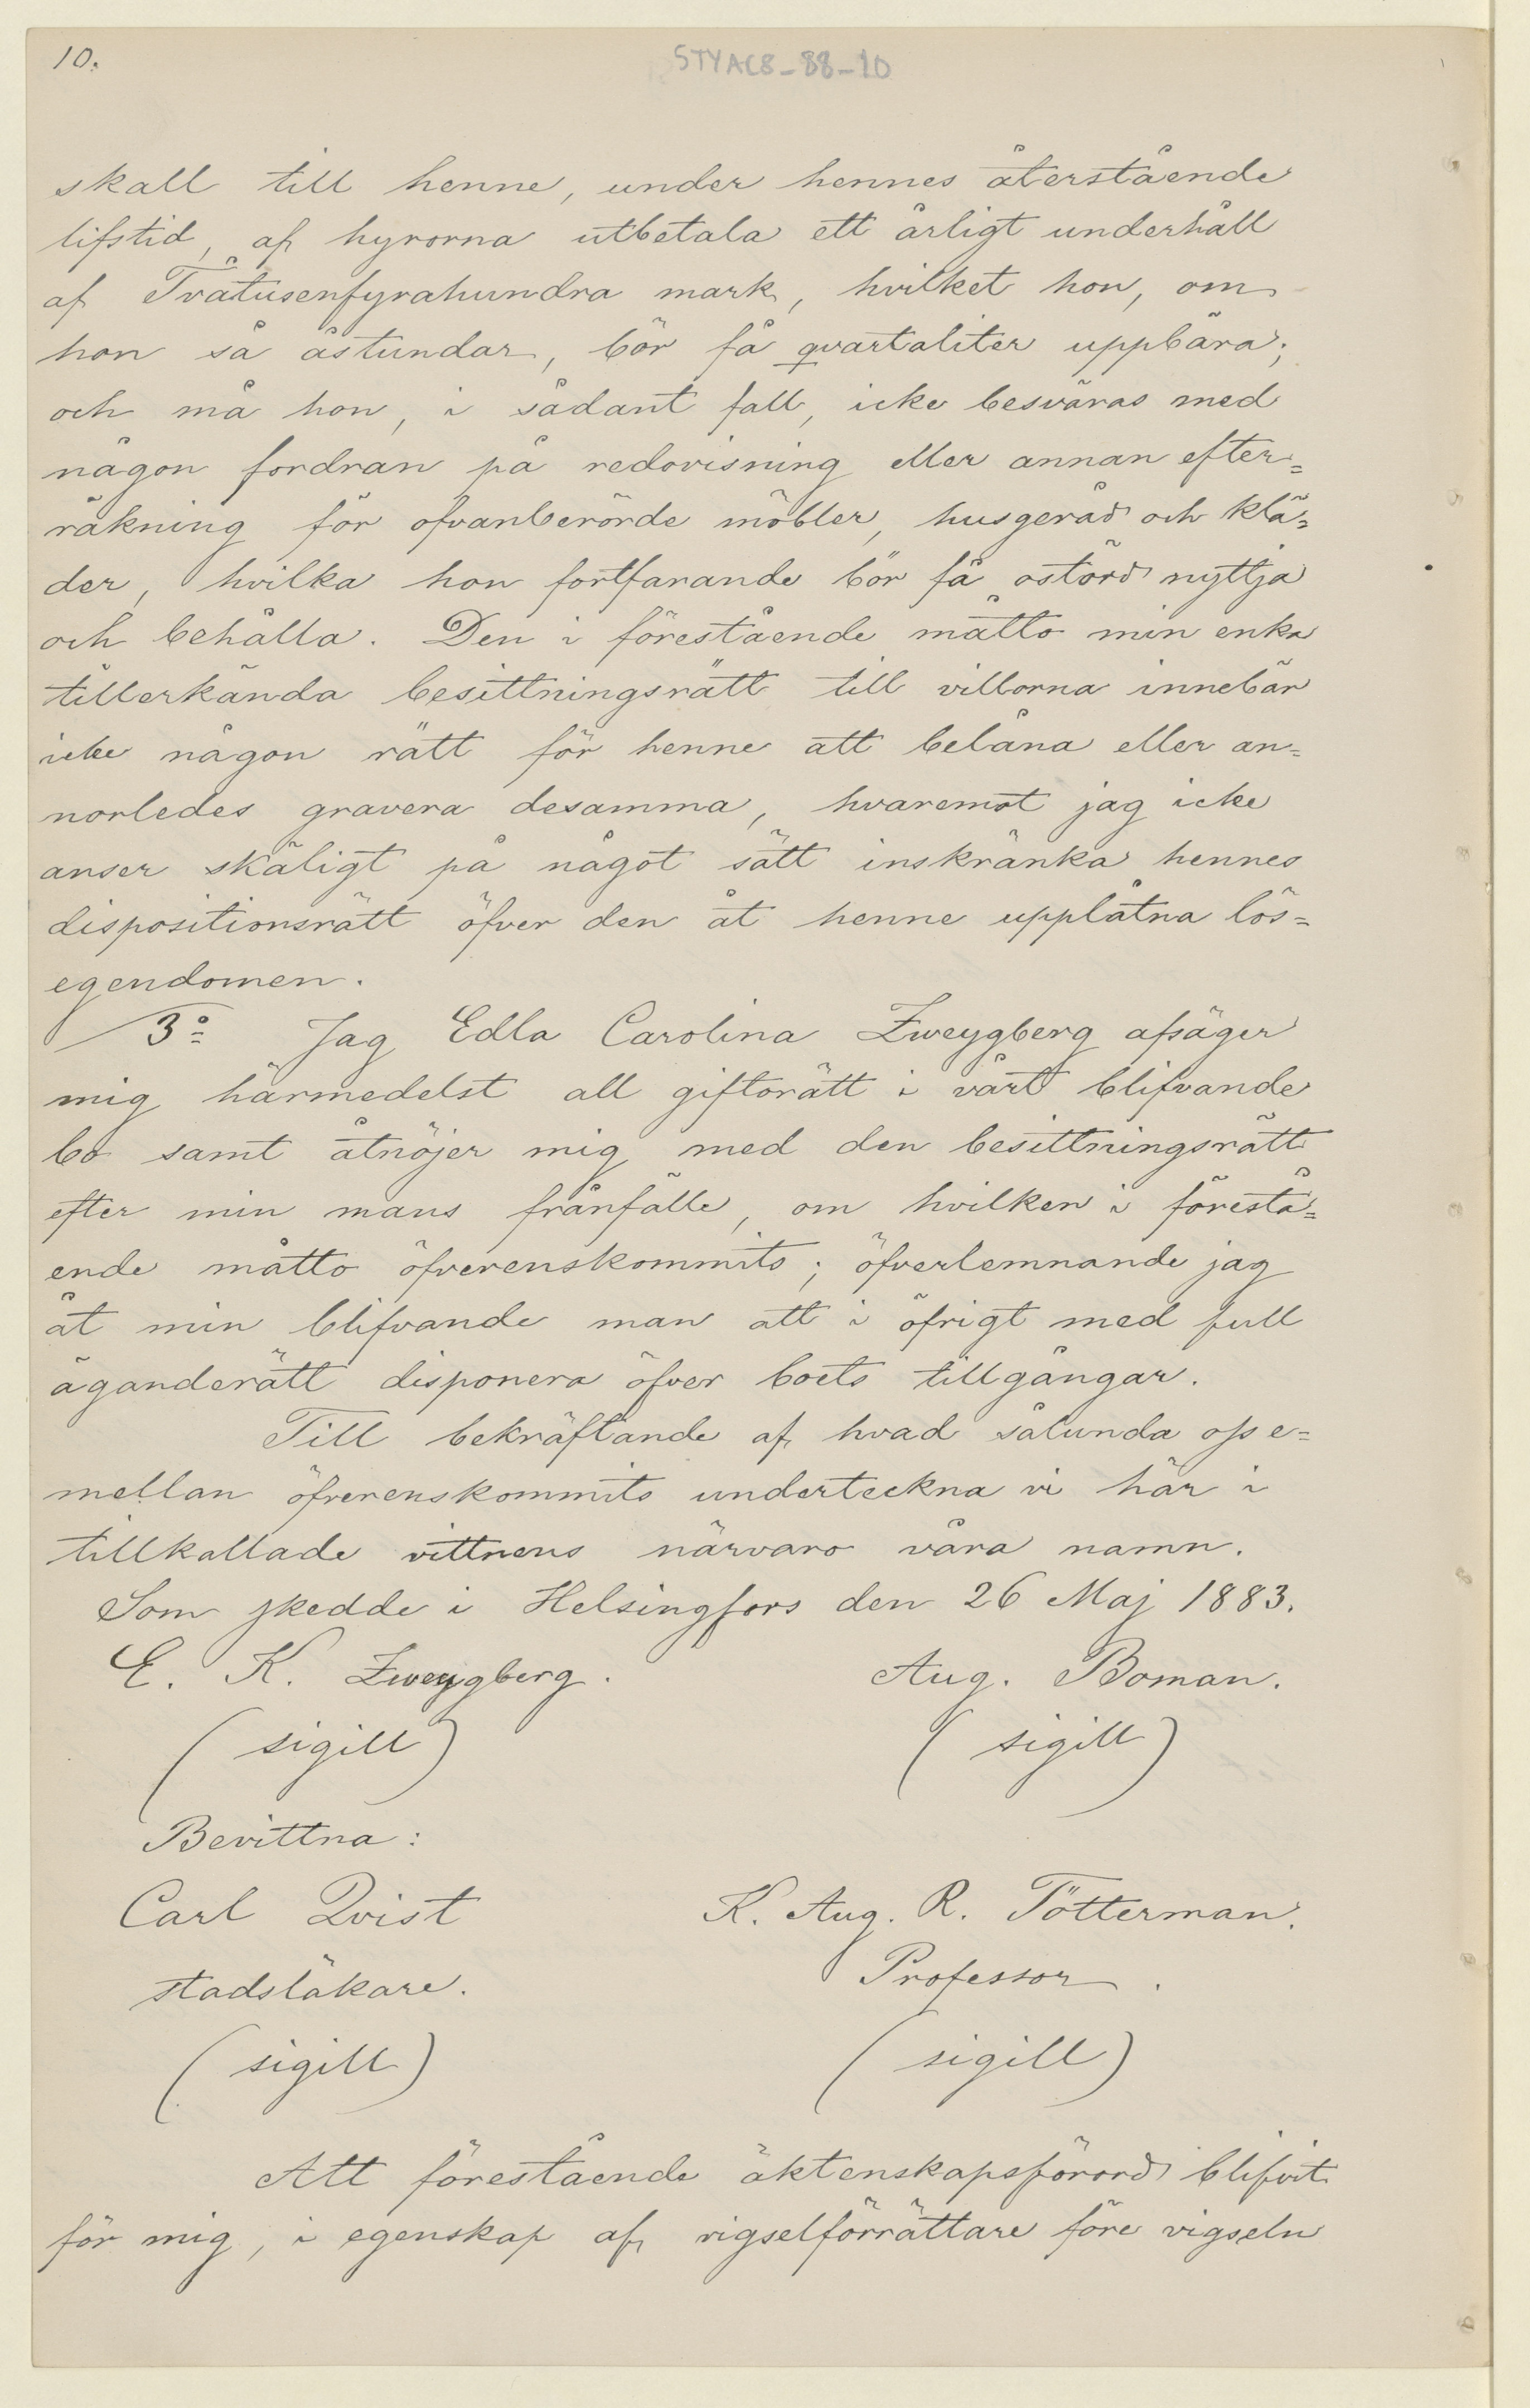 10.
STYAC8-88-10
skall till henne, under hennes återstående
lifstid, af hyrorna utbetala ett årligt underhåll
af Tvåtusenfyrahundra mark, hvilket hon, om
hon så åstundar, bör få qvartaliter uppbära;
och må hon, i sådant fall, icke besväras med
någon fordran på redovisning eller annan efter=
räkning för ofvanberörde möbler, husgeråd och klä=
der, hvilka hon fortfarande bör få ostörd nyttja
och behålla. Den i förestående måtto min enka
tillerkända besittningsrätt till villorna innebär
icke någon rätt för henne att belåna eller an=
norledes gravera desamma, hvaremot jag icke
anser skäligt på något sätt inskränka hennes
dispositionsrätt öfver den åt henne upplåtna lös=
egendomen.
3º Jag Edla Carolina Zweygberg afsäger
mig härmedelst all giftorätt i vårt blifvande
bo samt åtnöjer mig med den besittningsrätt
efter min mans frånfälle, om hvilken i förestå=
ende måtto öfverenskommits; öfverlemnande jag
åt min blifvande man att i öfrigt med full
äganderätt disponera öfver boets tillgångar.
Till bekräftande af hvad sålunda oss e=
mellan öfverenskommits underteckna vi här i
tillkallade vittnens närvaro våra namn.
Som skedde i Helsingfors den 26 Maj 1883.
E. K. Zweygberg. Aug. Boman.
(sigill) (sigill)
Bevittna:
Carl Qvist K. Aug. R. Tötterman.
stadsläkare. Professor.
(sigill) (sigill)
Att förestående äktenskapsförord blifvit
för mig, i egenskap af vigselförrättare före vigseln